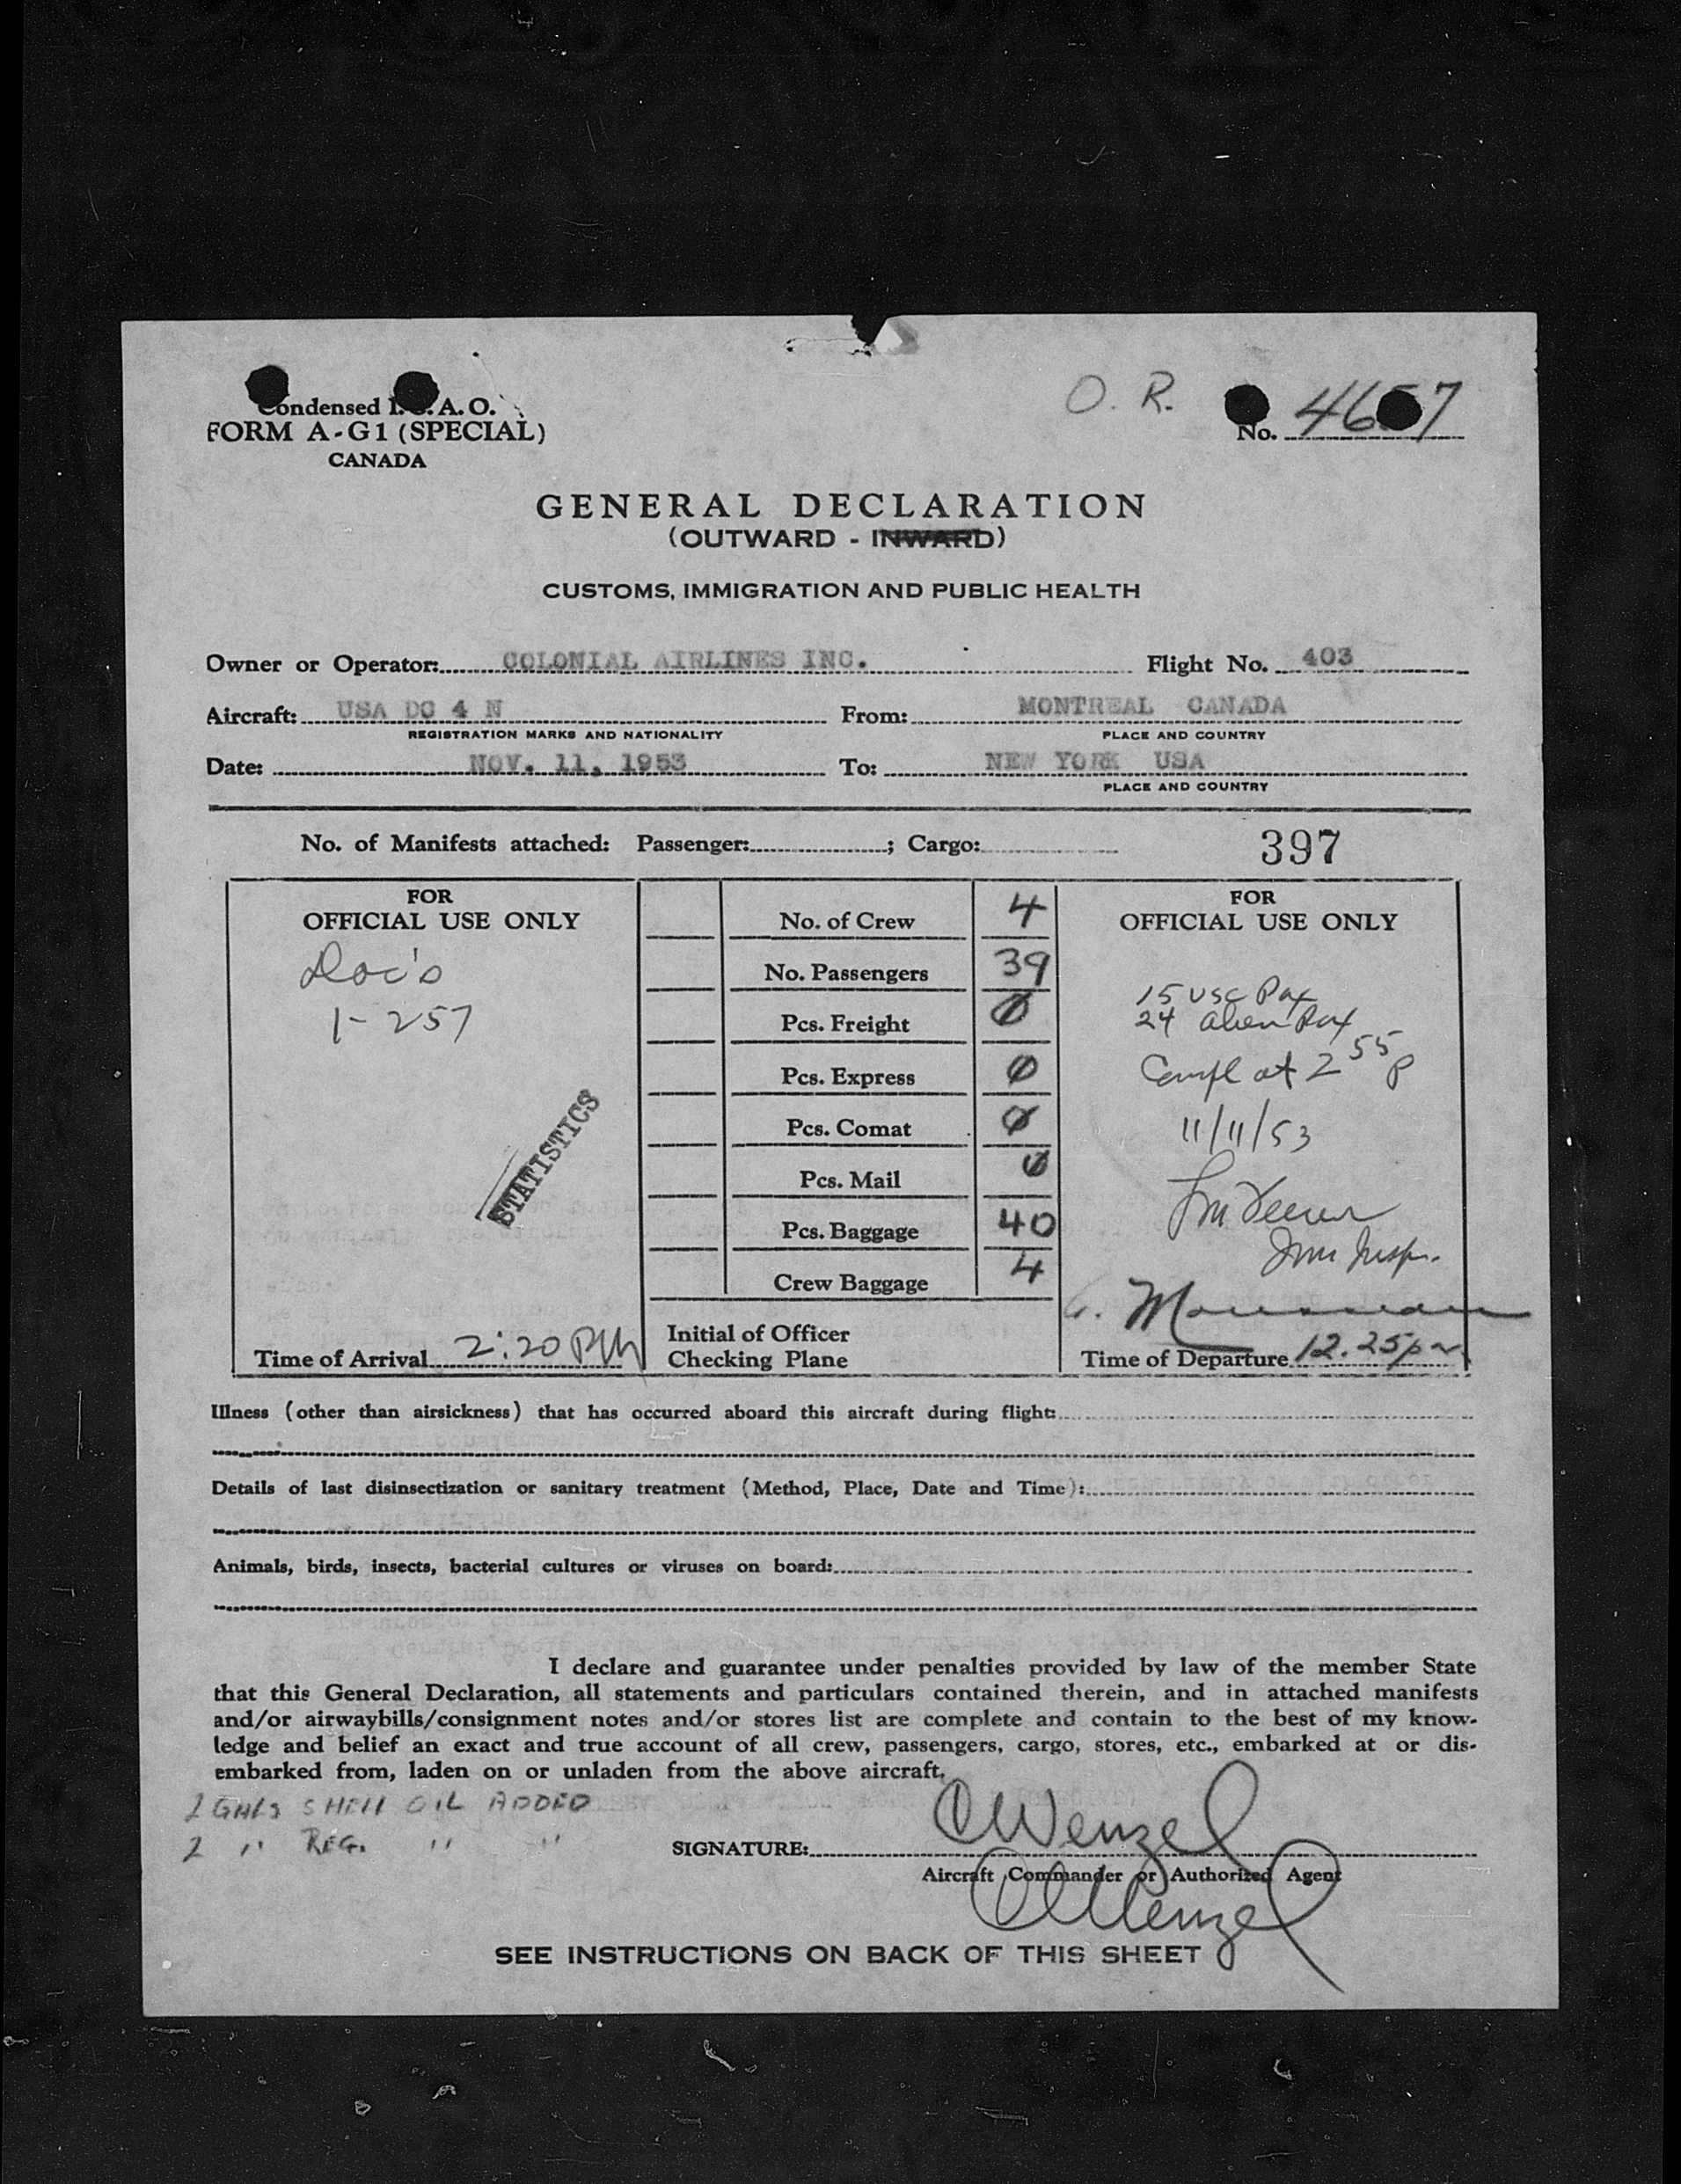 Condensed I.C.A.O.
FORM A-G1 (SPECIAL)
CANADA
O. R.
No.
GENERAL DECLARATION
(OUTWARD - INWARD)
CUSTOMS, IMMIGRATION AND PUBLIC HEALTH
Owner or Operator: COLONIAL AIRLINES INC. Flight No. 403
Aircraft: USA DC 4 N From: MONTREAL CANADA
REGISTRATION MARKS AND NATIONALITY PLACE AND COUNTRY
Date: NOV. 11, 1953 To: NEW YORK USA
PLACE AND COUNTRY
No. of Manifests attached: Passenger: ; Cargo: 397
FOR
OFFICIAL USE ONLY
Doc's
1-257
STATISTICS
Time of Arrival 2:20 PM
No. of Crew 4
No. Passengers 39
Pcs. Freight 0
Pcs. Express 0
Pcs. Comat 0
Pcs. Mail 0
Pcs. Baggage 40
Crew Baggage 4
Initial of Officer
Checking Plane
FOR
OFFICIAL USE ONLY
15 USC Pax
24 alien Pax
Compl at 2 55 P
11/11/53
Imm Insp.
Time of Departure 12.25 pm
Illness (other than airsickness) that has occurred aboard this aircraft during flight:
Details of last disinsectization or sanitary treatment (Method, Place, Date and Time):
Animals, birds, insects, bacterial cultures or viruses on board:
I declare and guarantee under penalties provided by law of the member State
that this General Declaration, all statements and particulars contained therein, and in attached manifests
and/or airwaybills/consignment notes and/or stores list are complete and contain to the best of my know-
ledge and belief an exact and true account of all crew, passengers, cargo, stores, etc., embarked at or dis-
embarked from, laden on or unladen from the above aircraft.
2 GALS SHELL OIL ADDED
2 " REG. " "
SIGNATURE: CWenzel
Aircraft Commander or Authorized Agent
CWenzel
SEE INSTRUCTIONS ON BACK OF THIS SHEET